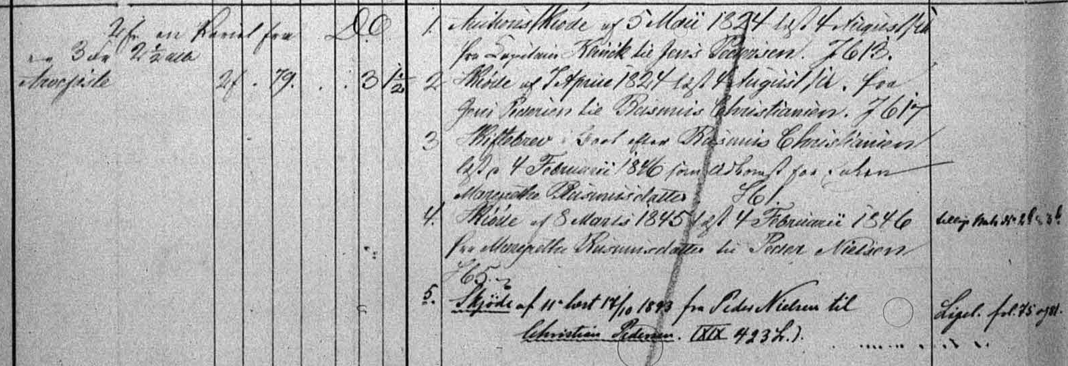 2 f. en Kariel fra
3 Sk 2 1/2 alb
2 f. 79. . . 3 1 1/2
1. Auctions/Skiöde af 5 Maii 1824 læst 4 August s/A
fra Capitain Klinck til Jens Pedersen. J 613.
2 Skiöde af 7 April 1824 læst 4 August s/A. fra
Jens Pedersen til Rasmus Christiansen. J 617
3 Skiftebrev i Boet efter Rasmus Christiansen
læst 4 Februarii 1846 som Adkomst for Enken
Margrethe Rasmusdatter H 1.
4. Skiöde af 8 Marts 1845 læst 4 Februarii 1846
fra Margrethe Rasmusdatter til Peder Nielsen
H 5.
5. Skjöde af 11' læst 17/10 1893 fra Peder Nielsen til
Christian Pedersen. (XIX 423 L.).
Ligel. fol. 75 og 81.